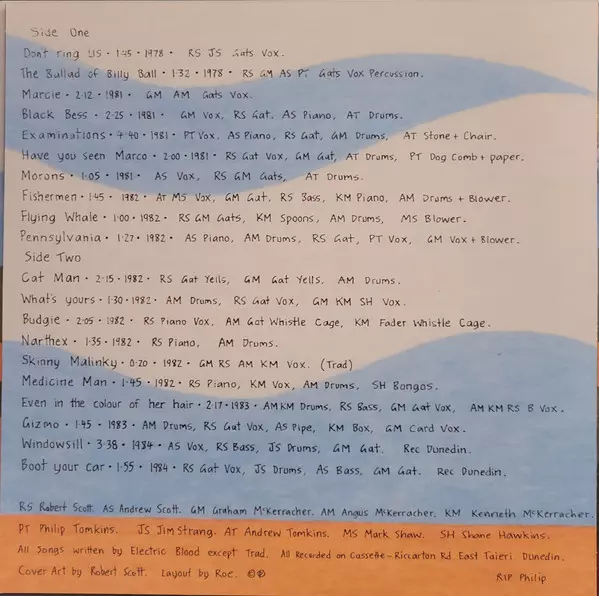 Side One
Dont ring US · 1·45 · 1978 · RS JS Gats Vox.
The Ballad of Billy Ball · 1·32 · 1978 · RS GM AS PT Gats Vox Percussion.
Marcie · 2·12 · 1981 · GM AM Gats Vox.
Black Bess · 2·25 · 1981 · GM Vox, RS Gat, AS Piano, AT Drums.
Examinations · 4·40 · 1981 · PT Vox, AS Piano, RS Gat, GM Drums, AT Stone + Chair.
Have you seen Marco · 2·00 · 1981 · RS Gat Vox, GM Gat, AT Drums, PT Dog Comb + paper.
Morons · 1·05 · 1981 · AS Vox, RS GM Gats, AT Drums.
Fishermen · 1·45 · 1982 · AT MS Vox, GM Gat, RS Bass, KM Piano, AM Drums + Blower.
Flying Whale · 1·00 · 1982 · RS GM Gats, KM Spoons, AM Drums, MS Blower.
Pennsylvania · 1·27 · 1982 · AS Piano, AM Drums, RS Gat, PT Vox, GM Vox + Blower.
Side Two
Cat Man · 2·15 · 1982 · RS Gat Yells, GM Gat Yells, AM Drums.
What's yours · 1·30 · 1982 · AM Drums, RS Gat Vox, GM KM SH Vox.
Budgie · 2·05 · 1982 · RS Piano Vox, AM Gat Whistle Cage, KM Fader Whistle Cage.
Narthex · 1·35 · 1982 · RS Piano, AM Drums.
Skinny Malinky · 0·20 · 1982 · GM RS AM KM Vox. (Trad)
Medicine Man · 1·45 · 1982 · RS Piano, KM Vox, AM Drums, SH Bongos.
Even in the colour of her hair · 2·17 · 1983 · AM KM Drums, RS Bass, GM Gat Vox, AM KM RS B Vox.
Gizmo · 1·45 · 1983 · AM Drums, RS Gat Vox, AS Pipe, KM Box, GM Card Vox.
Windowsill · 3·38 · 1984 · AS Vox, RS Bass, JS Drums, GM Gat. Rec Dunedin.
Boot your car · 1·55 · 1984 · RS Gat Vox, JS Drums, AS Bass, GM Gat. Rec Dunedin.
RS Robert Scott. AS Andrew Scott. GM Graham McKerracher. AM Angus McKerracher. KM Kenneth McKerracher.
PT Philip Tomkins. JS Jim Strang. AT Andrew Tomkins. MS Mark Shaw. SH Shane Hawkins.
All Songs written by Electric Blood except Trad. All Recorded on Cassette - Riccarton Rd. East Taieri Dunedin.
Cover Art by Robert Scott. Layout by Roe. ©℗
RIP Philip